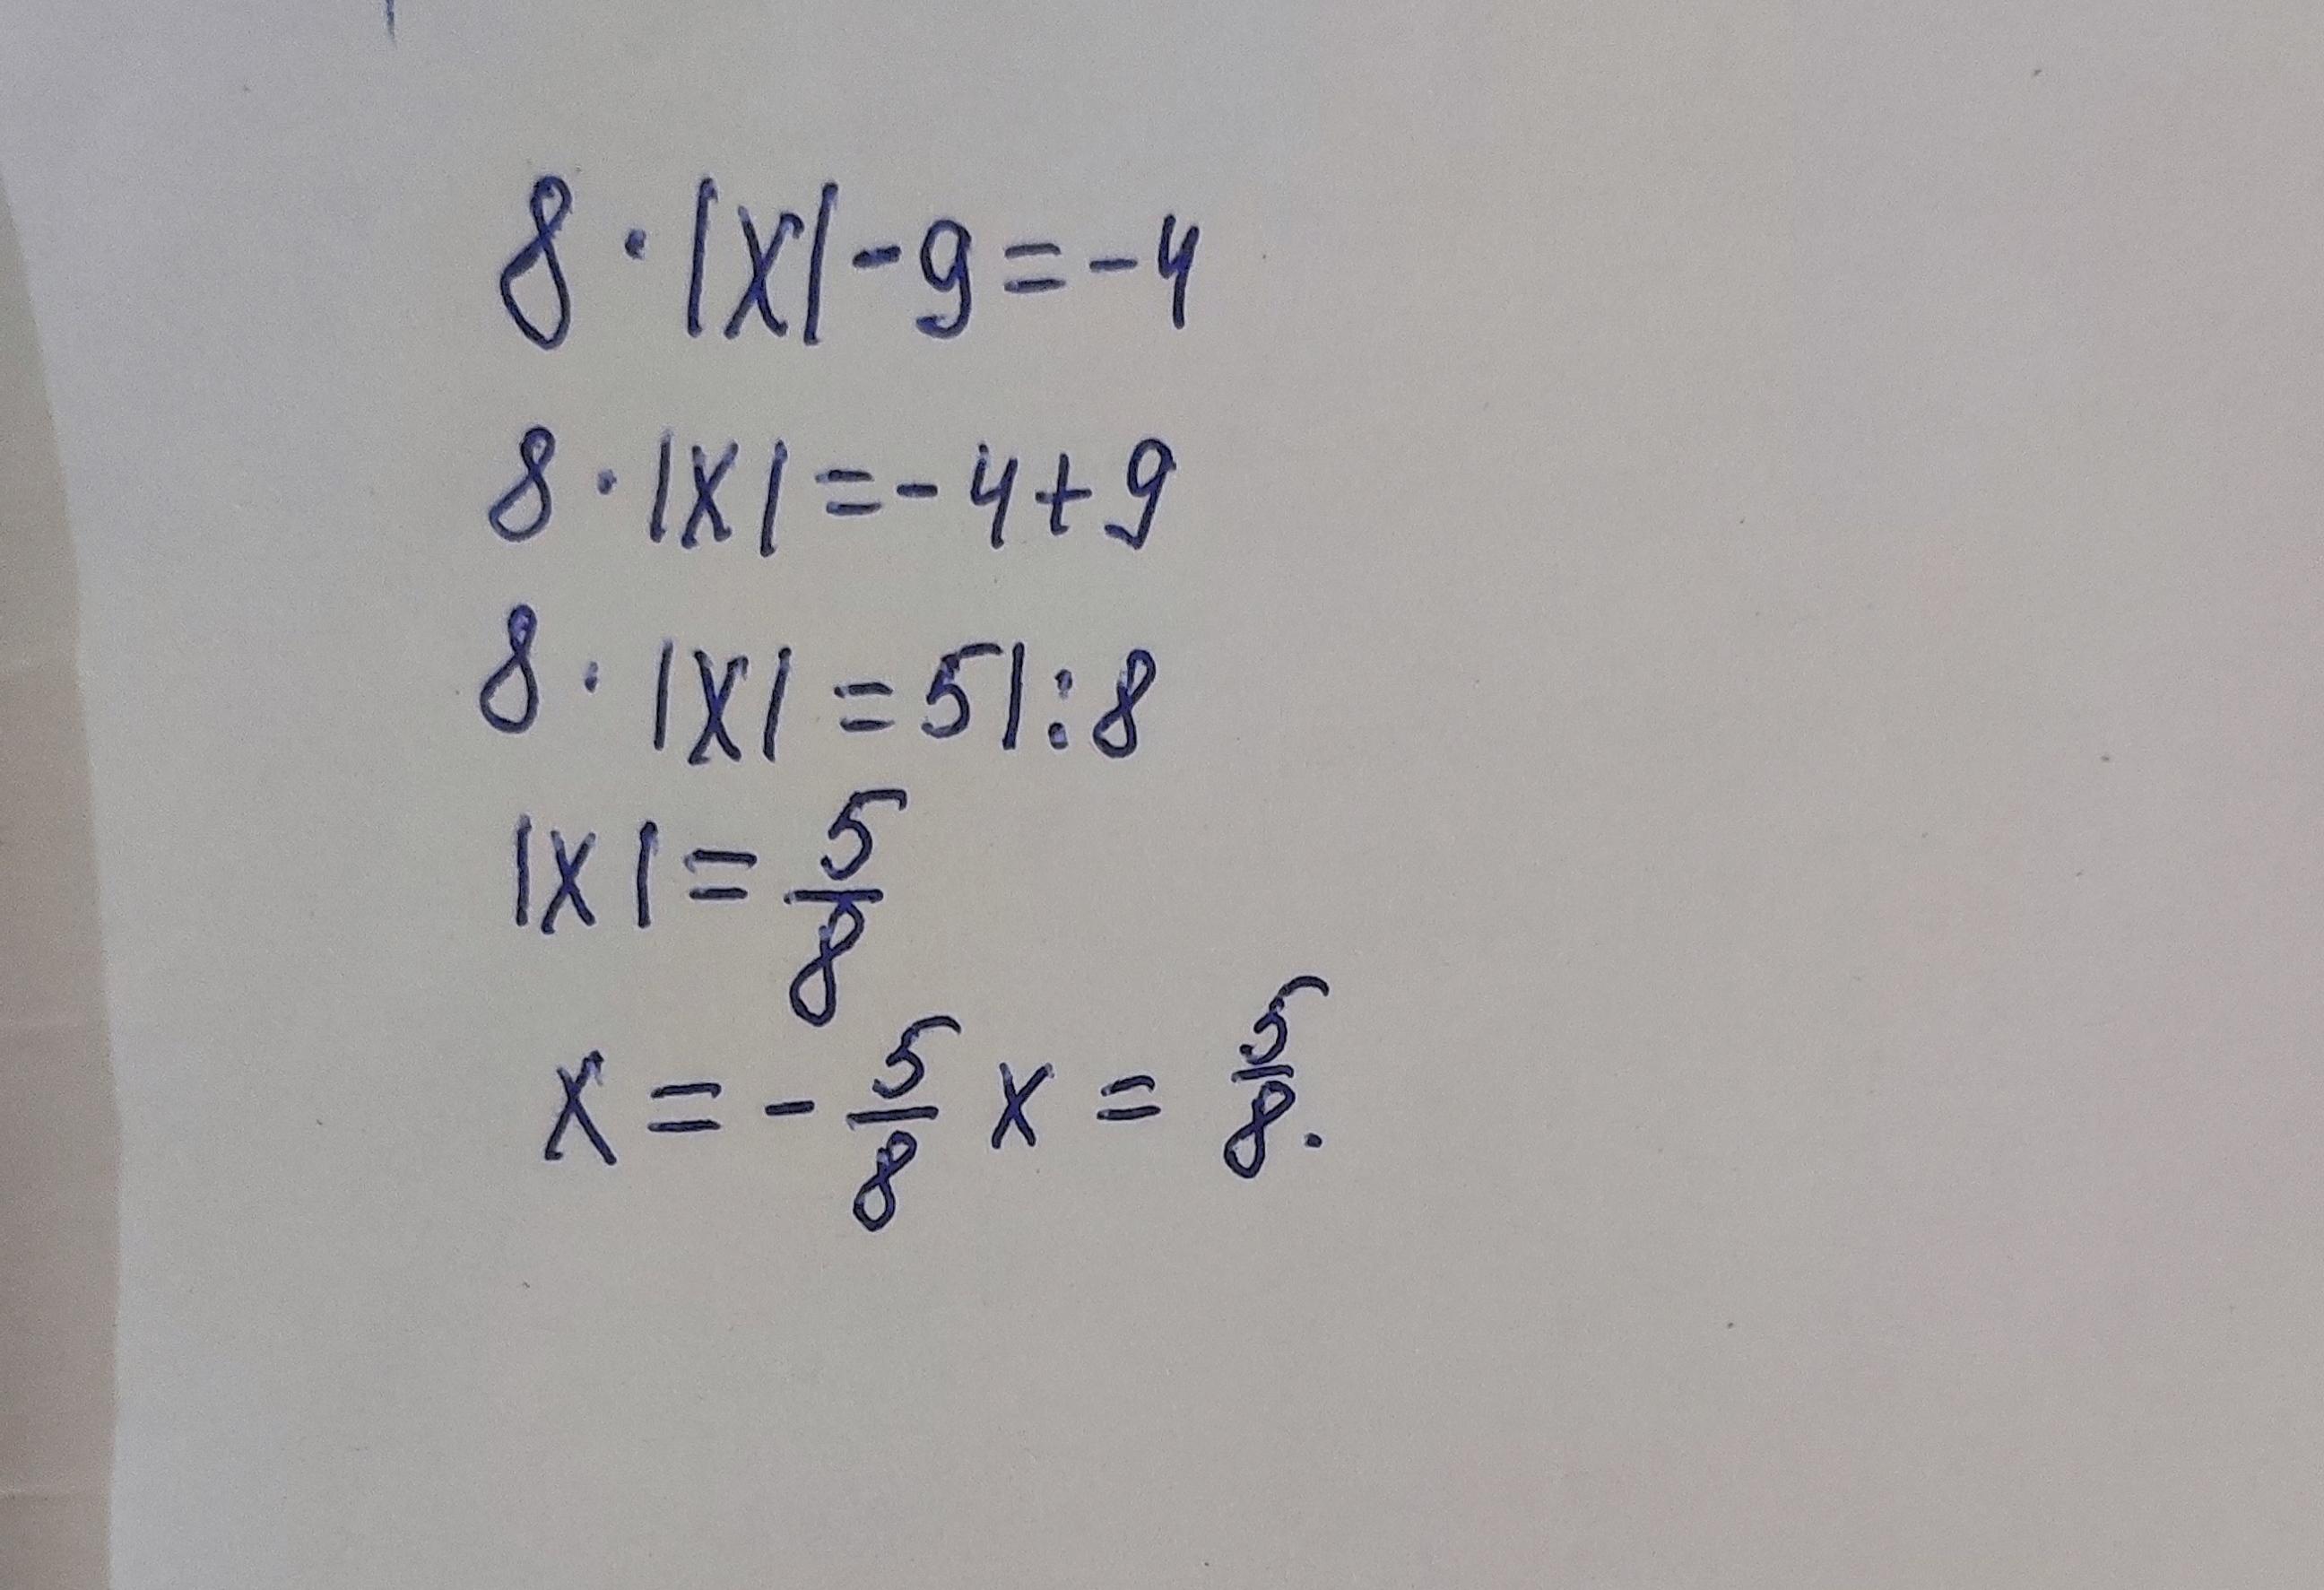 8 · |x| - 9 = -4
8 · |x| = -4 + 9
8 · |x| = 5 | : 8
|x| = 5/8
x = -5/8 x = 5/8.